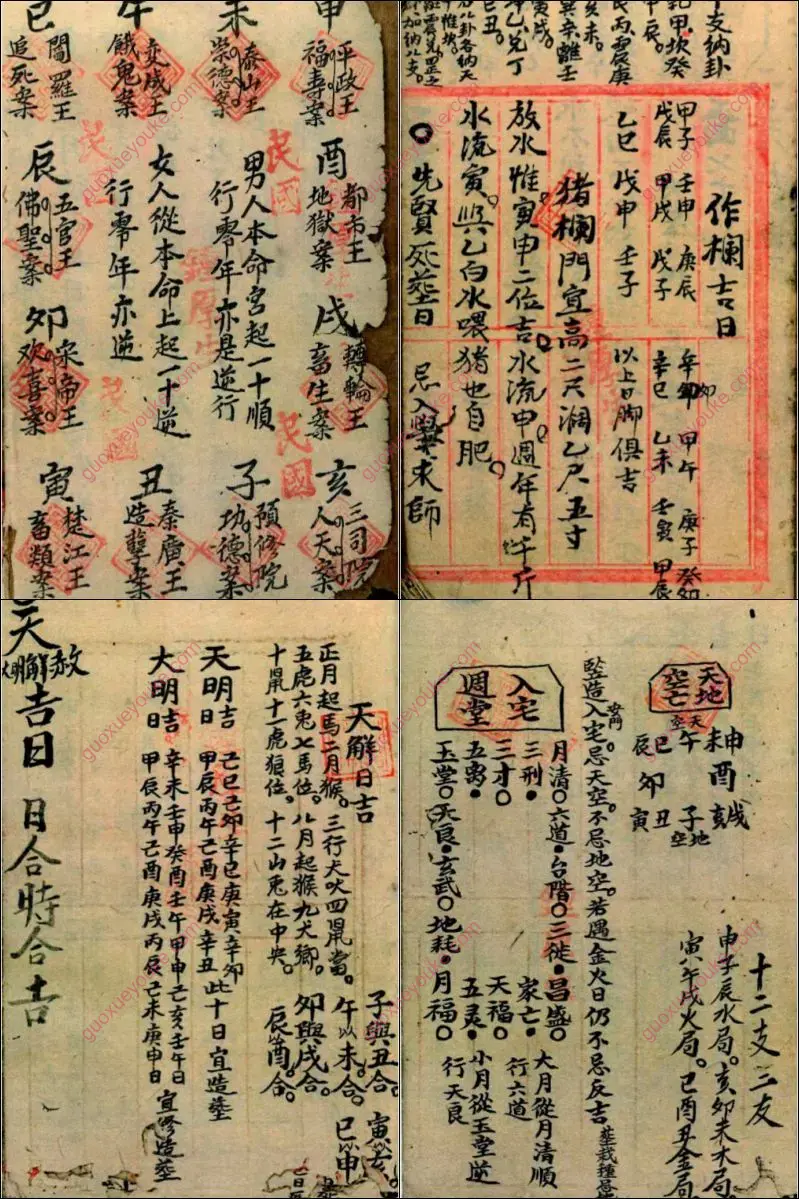 申
平政王
福壽案
未
泰山王
午
变成王
餓鬼案
巳
閻羅王
追死案
酉
都市王
地獄案
男人本命宮起一十順
行零年亦是逆行
女人從本命上起一十逆
行零年亦逆
辰
五官王
佛聖案
戌
轉輪王
畜生案
卯
欢喜案
亥
三司院
人天案
子
預修院
功德案
丑
秦廣王
造孽案
寅
楚江王
畜類案
支納卦
乾甲坎癸
甲辰
艮丙震庚
亥未
巽辛離壬
寅戌
坤乙兑丁
巳丑
作欄吉日
甲子 壬申 庚辰 辛卯 甲午 庚子 癸卯
戊辰 甲戌 戊子 辛巳 乙未 壬寅 甲辰
乙巳 戊申 壬子 以上日脚俱吉
猪欄門宜高二尺濶乙尺五寸
放水惟寅申二位吉。水流申。週年有千斤
水流寅。與乙白水喂猪也自肥。
○先賢死塟日 忌入學求師
天解日吉
正月起馬二月猴。三行犬吠四鼠當。
五虎六兎七馬位。八月起猴九犬鄉。
十鼠十一虎狼位。十二山兎在中央。
子與丑合。寅以亥。
午以未合。巳以申
卯與戌合。
辰以酉合。
天明吉日
己巳己卯辛巳庚寅辛卯
甲辰丙午己酉庚戌辛丑
此十日宜造塟
大明吉日
辛未壬申癸酉壬午甲申己亥壬午日
甲辰丙午己酉庚戌丙辰己未庚申日
宜修造塟
赦
解
明
吉日
日合時合吉
十二支三友
申子辰水局。亥卯未木局。
寅午戌火局。巳酉丑金局
天地空亡
申
未 酉 戌
天空 午 亥
巳 卯 子 地空
辰 寅 丑
竪造入宅。忌天空。不忌地空。若遇金火日仍不忌反吉
安門
入宅週堂
月清○六道●台階○三徙●昌盛○
三刑● 家亡●
三才○ 天福○
五离● 五灵●
玉堂○天良●玄武●地耗●月福○
大月從月清順
行六道
小月從玉堂逆
行天良